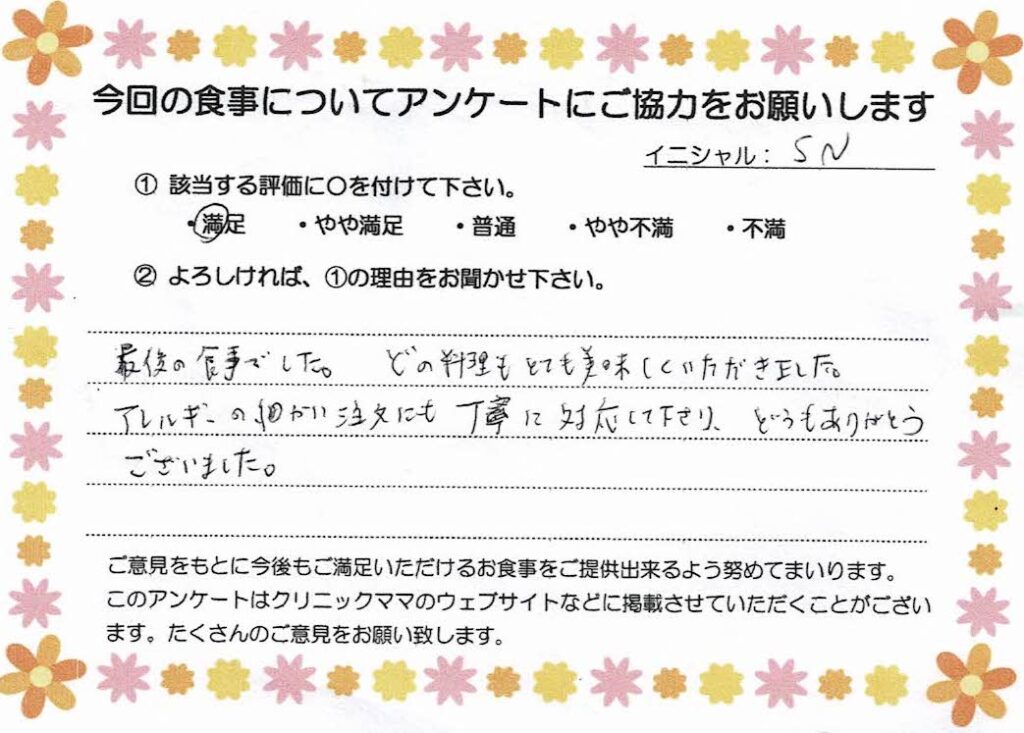 今回の食事についてアンケートにご協力をお願いします
イニシャル： SN
① 該当する評価に○を付けて下さい。
・満足 ・やや満足 ・普通 ・やや不満 ・不満
② よろしければ、①の理由をお聞かせ下さい。
最後の食事でした。 どの料理もとても美味しくいただきました。
アレルギーの細かい注文にも丁寧に対応して下さり、どうもありがとう
ございました。
ご意見をもとに今後もご満足いただけるお食事をご提供出来るよう努めてまいります。
このアンケートはクリニックママのウェブサイトなどに掲載させていただくことがござい
ます。たくさんのご意見をお願い致します。